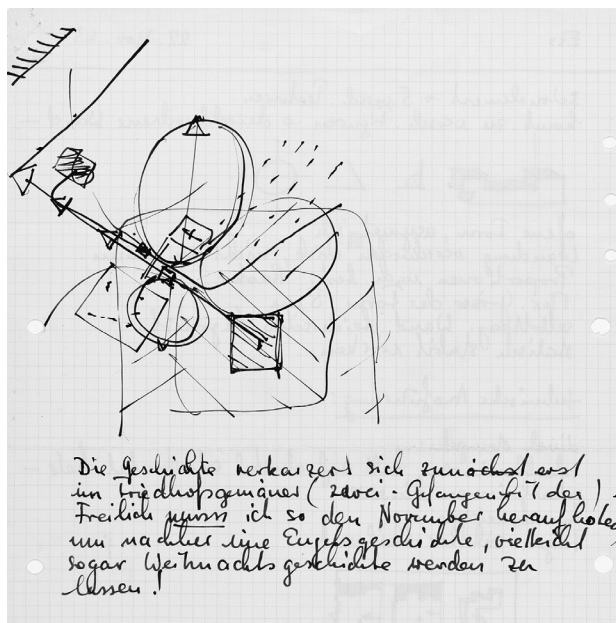 Die Geschichte verkarzert sich zunächst erst
im Friedhofsgemäuer (zwei-
Freilich muss ich so den November heraufholen
um nachher eine Engelsgeschichte, vielleicht
sogar Weihnachtsgeschichte werden zu
lassen!